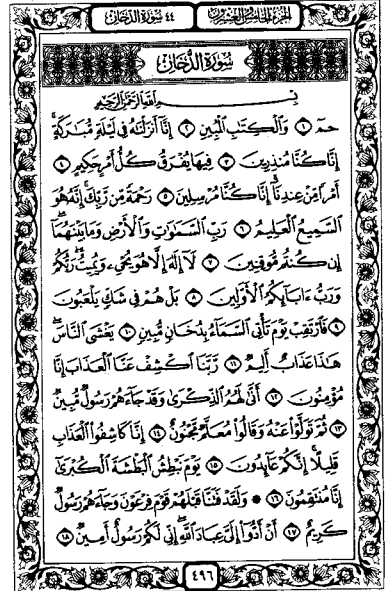 الجزء الخامس والعشرون
٤٤ سورة الدخان
سُورَةُ الدُّخَانِ
بِسْمِ اللَّهِ الرَّحْمَٰنِ الرَّحِيمِ
حمٓ ۝١ وَٱلْكِتَٰبِ ٱلْمُبِينِ ۝٢ إِنَّآ أَنزَلْنَٰهُ فِى لَيْلَةٍ مُّبَٰرَكَةٍ ۚ
إِنَّا كُنَّا مُنذِرِينَ ۝٣ فِيهَا يُفْرَقُ كُلُّ أَمْرٍ حَكِيمٍ ۝٤
أَمْرًا مِّنْ عِندِنَآ ۚ إِنَّا كُنَّا مُرْسِلِينَ ۝٥ رَحْمَةً مِّن رَّبِّكَ ۚ إِنَّهُۥ هُوَ
ٱلسَّمِيعُ ٱلْعَلِيمُ ۝٦ رَبِّ ٱلسَّمَٰوَٰتِ وَٱلْأَرْضِ وَمَا بَيْنَهُمَآ ۖ
إِن كُنتُم مُّوقِنِينَ ۝٧ لَآ إِلَٰهَ إِلَّا هُوَ يُحْىِۦ وَيُمِيتُ ۖ رَبُّكُمْ
وَرَبُّ ءَابَآئِكُمُ ٱلْأَوَّلِينَ ۝٨ بَلْ هُمْ فِى شَكٍّ يَلْعَبُونَ
۝٩ فَٱرْتَقِبْ يَوْمَ تَأْتِى ٱلسَّمَآءُ بِدُخَانٍ مُّبِينٍ ۝١٠ يَغْشَى ٱلنَّاسَ ۖ
هَٰذَا عَذَابٌ أَلِيمٌ ۝١١ رَّبَّنَا ٱكْشِفْ عَنَّا ٱلْعَذَابَ إِنَّا
مُؤْمِنُونَ ۝١٢ أَنَّىٰ لَهُمُ ٱلذِّكْرَىٰ وَقَدْ جَآءَهُمْ رَسُولٌ مُّبِينٌ
۝١٣ ثُمَّ تَوَلَّوْا۟ عَنْهُ وَقَالُوا۟ مُعَلَّمٌ مَّجْنُونٌ ۝١٤ إِنَّا كَاشِفُوا۟ ٱلْعَذَابِ
قَلِيلًا ۚ إِنَّكُمْ عَآئِدُونَ ۝١٥ يَوْمَ نَبْطِشُ ٱلْبَطْشَةَ ٱلْكُبْرَىٰٓ
إِنَّا مُنتَقِمُونَ ۝١٦ ۞ وَلَقَدْ فَتَنَّا قَبْلَهُمْ قَوْمَ فِرْعَوْنَ وَجَآءَهُمْ رَسُولٌ
كَرِيمٌ ۝١٧ أَنْ أَدُّوٓا۟ إِلَىَّ عِبَادَ ٱللَّهِ ۖ إِنِّى لَكُمْ رَسُولٌ أَمِينٌ ۝١٨
٤٩٦